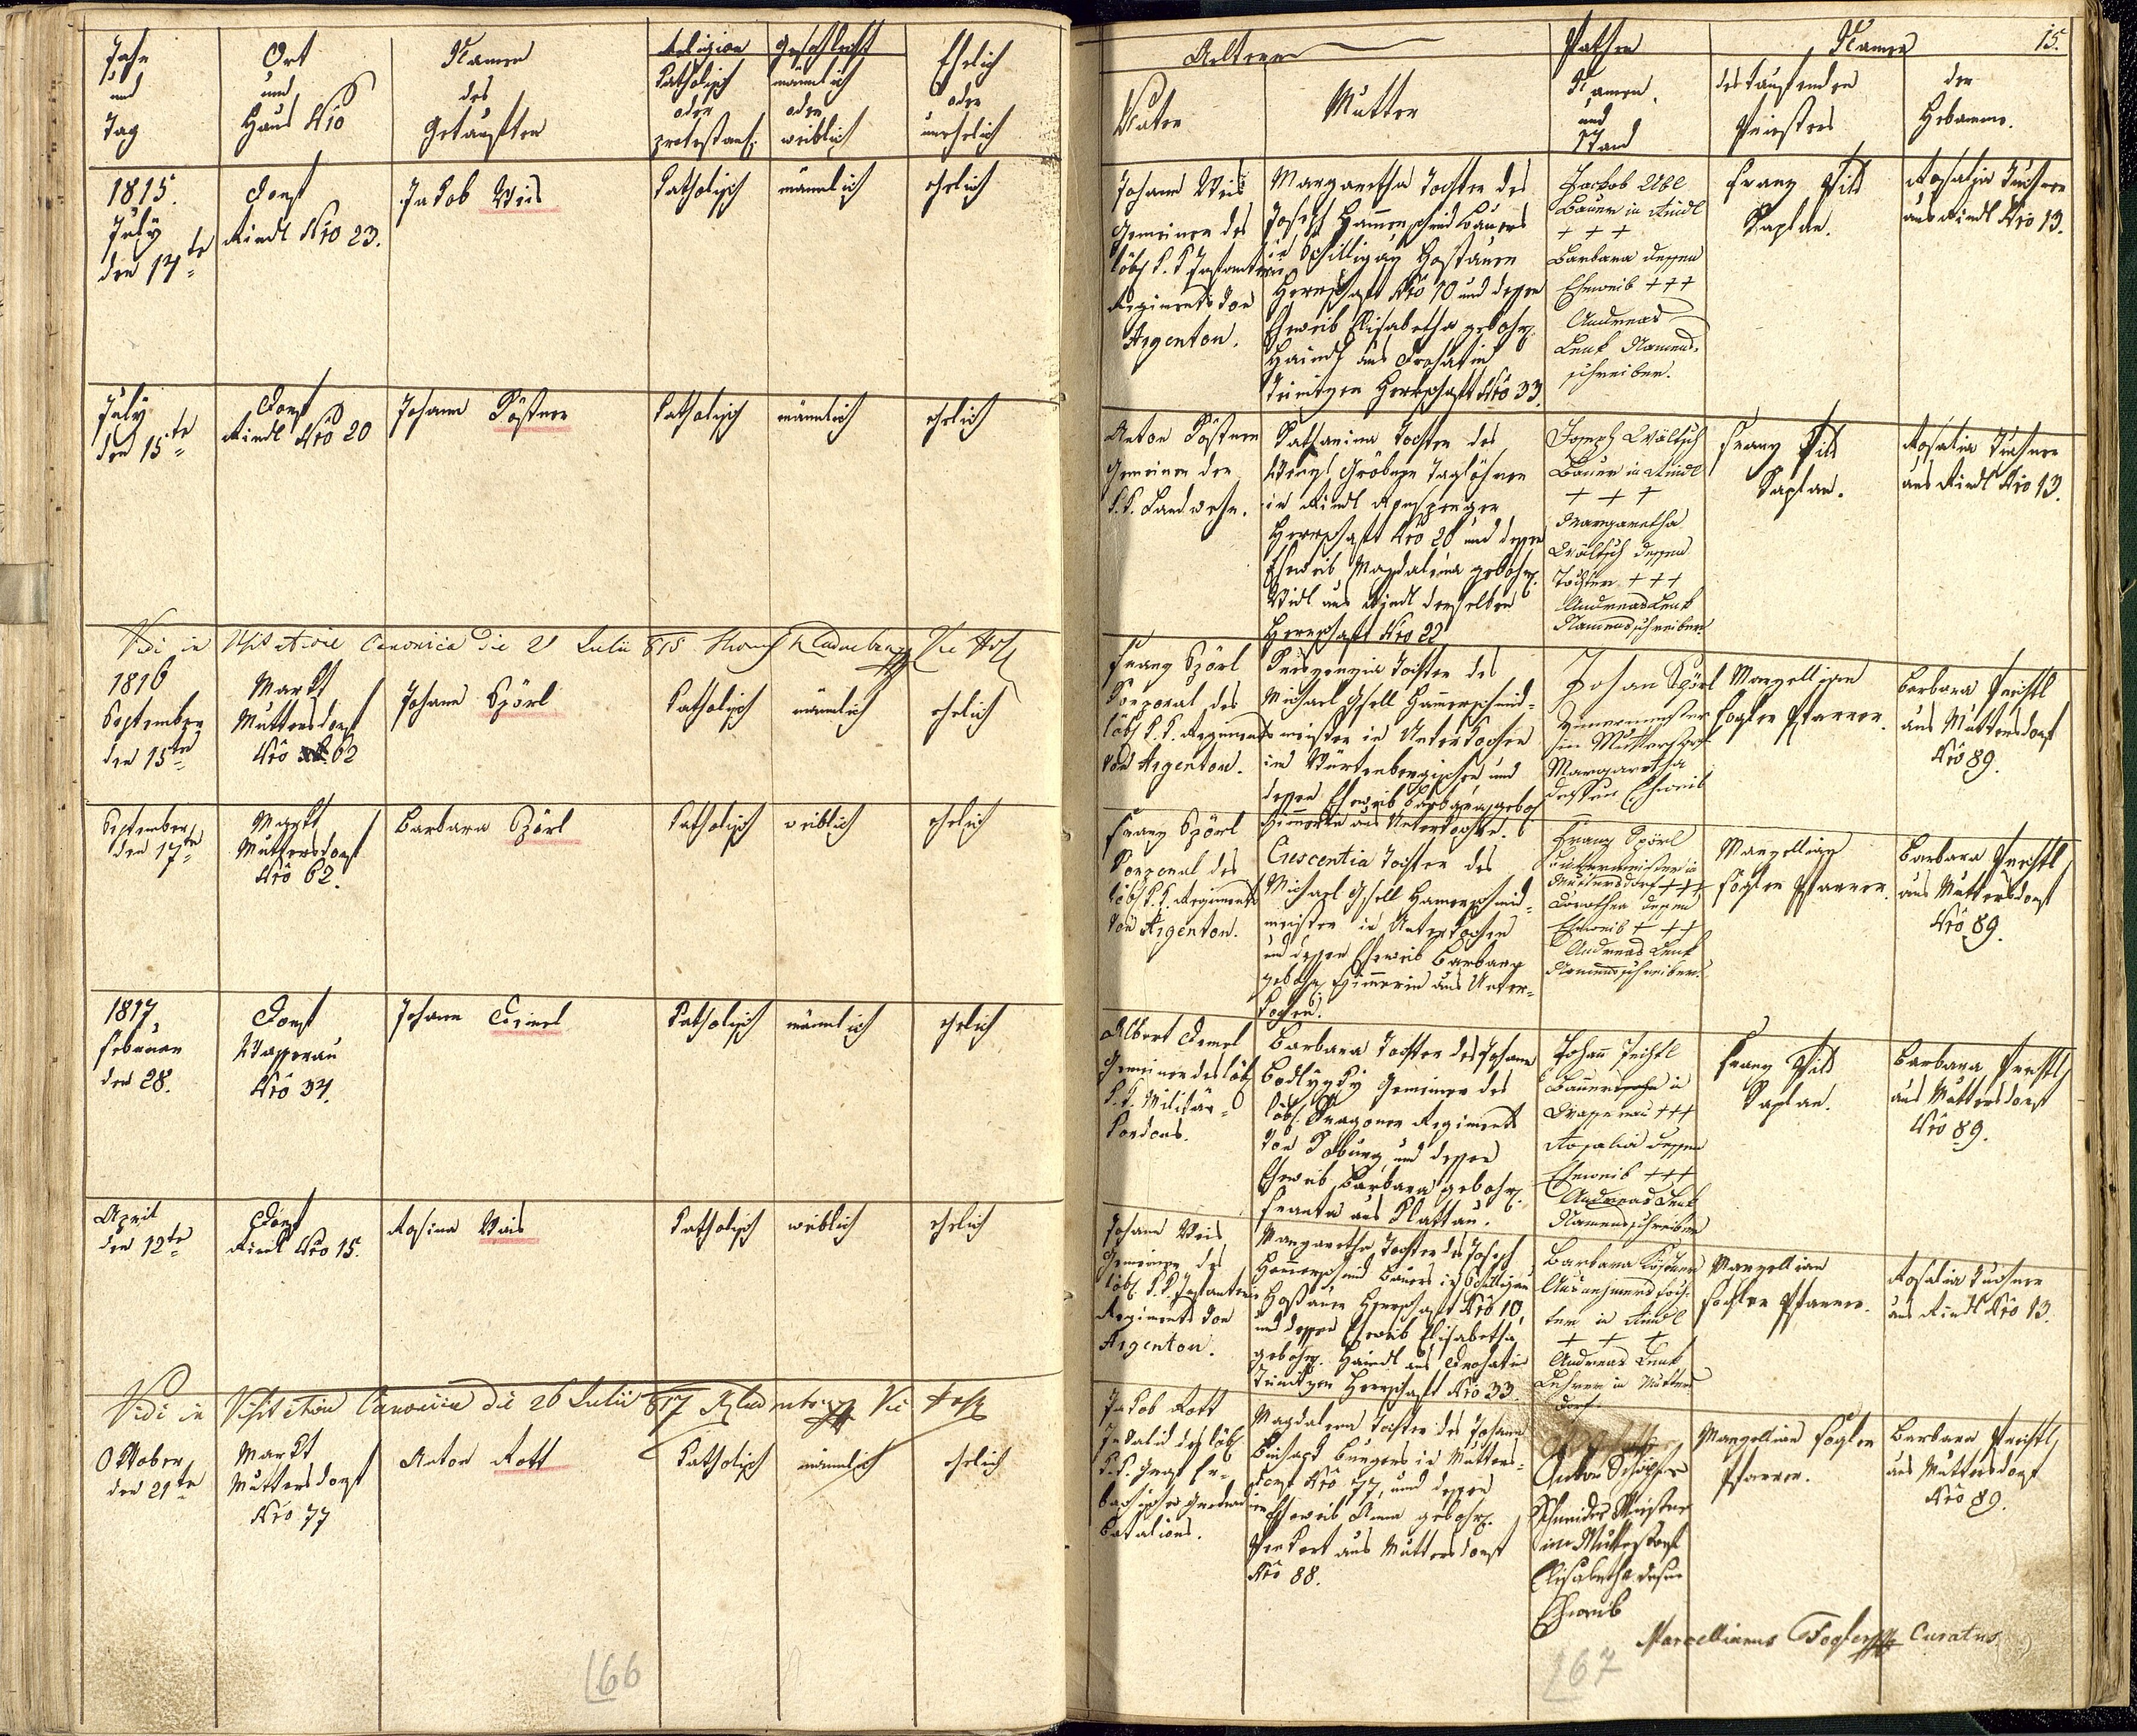 Jahr
und
Tag
Ort
und
Haus Nro
Namen
des
Getauften
Religion
Katholisch
oder
protestant.
Geschlecht
männlich
oder
weiblich
Ehelich
oder
unehelich
1815.
July
den 14te
Dorf
Rindl Nro 23.
Jakob Weis
Katholisch
männlich
ehelich
July
den 15te
Dorf
Rindl Nro 20
Johann Köstner
Katholisch
männlich
ehelich
Vidi in Visitatione Canonica die 21 Julii 815
1816
September
den 15ten
Markt
Muttersdorf
Nro 62
Johann Spörl
Katholisch
männlich
ehelich
September
den 17te
Markt
Muttersdorf
Nro 62.
Barbara Spörl
Katholisch
weiblich
ehelich
1817
Februar
den 28.
Dorf
Wasserau
Nro 34.
Johann Demel
Katholisch
männlich
ehelich
April
den 12te
Dorf
Rindl Nro 15.
Rosina Weis
Katholisch
weiblich
ehelich
Vidi in Visitatione Canonica die 26 Julii 817
Oktober
den 21te
Markt
Muttersdorf
Nro 77
Anton Rott
Katholisch
männlich
ehelich
166
15.
Aeltern
Vater
Mutter
Pathen
Namen
und
Stand
Namen
des taufenden
Priesters
der
Hebamme.
Johann Weis
Gemeiner des
löbl. k. k. Infanterie
Regiments von
Argenton.
Margaretha Tochter des
Joseph Hammerschmid Bauers
in Schilligau Hostauer
Herrschaft Nro 10 und dessen
Eheweib Elisabetha gebohr.
Haindl aus
Herrschaft Nro 33.
Jackob
Bauer in Rindl
+ + +
Barbara dessen
Eheweib +++
Andreas
Lenk Namens-
schreiber.
Franz Pils
Kaplan.
Rosalia Tuchner
aus Rindl Nro 13.
Anton Köstner
Gemeiner der
k. k. Landwehr.
Katharina Tochter des
Wenzl Gröbner Taglöhner
in Rindl Ronsperger
Herrschaft Nro 20 und dessen
Eheweib Magdalena gebohr.
Vidl aus Rindl derselben
Herrschaft Nro 22
Joseph Wältsch
Bauer in Rindl
+ + +
Margaretha
Wältsch dessen
Tochter +++
Andreas Lenk
Namensschreiber.
Franz Pils
Kaplan.
Rosalia Tuchner
aus Rindl Nro 13.
Franz Spörl
Korporal des
löbl. k. k. Regiments
von Argenton.
Kreszenzia Tochter des
Michael Gsell Hammerschmid-
meister in Unterkochen
im Würtenbergischen und
dessen Eheweib Barbara gebohr.
aus Unterkochen.
Johan Spörl
Zimermeister
in Muttersdorf
Margaretha
dessen Eheweib
Marzellian
Fogler Pfarrer.
Barbara Preistl
aus Muttersdorf
Nro 89.
Franz Spörl
Korporal des
löbl. k. k. Regiments
von Argenton.
Crescentia Tochter des
Michael Gsell Hammerschmid-
meister in Unterkochen
und dessen Eheweib Barbara
gebohr. aus Unter-
kochen.
Franz Spörl
Zimermeister in
Muttersdorf +++
Dorothea dessen
Eheweib + ++
Andreas Lenk
Namensschreiber.
Marzellian
Fogler Pfarrer.
Barbara Preistl
aus Muttersdorf
Nro 89.
Albert Demel
Gemeiner des löbl.
k. k. Militär-
Kordons.
Barbara Tochter des Johann
Gemeiner des
löbl. Dragoner Regiments
von Koburg, und dessen
Eheweib Barbara gebohr.
aus Klattau.
Johann
Bauer in
Wasserau +++
Rosalia dessen
Eheweib +++
Andreas Lenk
Namensschreiber
Franz Pils
Kaplan.
Barbara Preistl
aus Muttersdorf
Nro 89.
Johann Weis
Gemeiner des
löbl. k. k. Infanterie
Regiments von
Argenton.
Margaretha Tochter des Joseph
Hammerschmid Bauers in Schilligau
Hostauer Herrschaft Nro 10,
und dessen Eheweib Elisabetha
gebohr. Haindl aus
Herrschaft Nro 33.
Barbara Köstner
Ausnehmers Toch-
ter in Rindl
+ + +
Andreas Lenk
Lehrer in Mutters
dorf.
Marzellian
Fogler Pfarrer.
Rosalia Tuchner
aus Rindl Nro 13.
Jakob Rott
Invalid des löbl.
k. k. Graf
Batalions.
Magdalena Tochter des Johann
Bürgers in Mutters-
dorf Nro 77, und dessen
Eheweib Anna gebohr.
aus Muttersdorf
Nro 88.
Anton
Schneider Meister
in Muttersdorf
Elisabetha dessen
Eheweib
Marzellian Fogler
Pfarrer.
Barbara Preistl
aus Muttersdorf
Nro 89.
Marcellianus Fogler Curatus
167